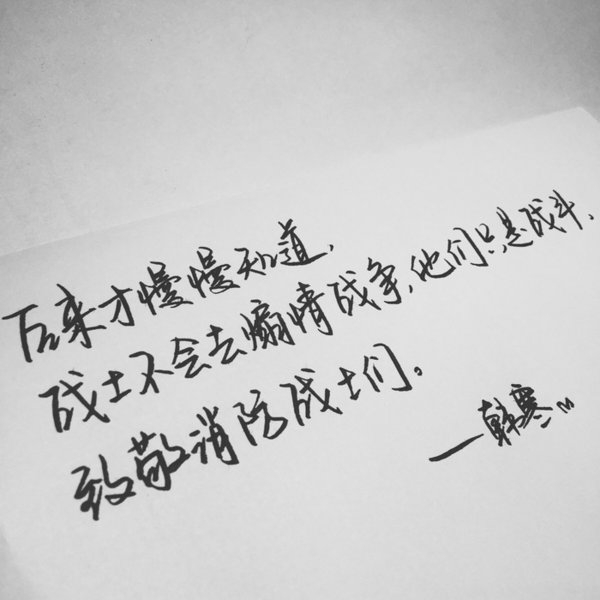 后来才慢慢知道,
战士不会去煽情战争,他们只是战斗,
致敬消防战士们。
—韩寒